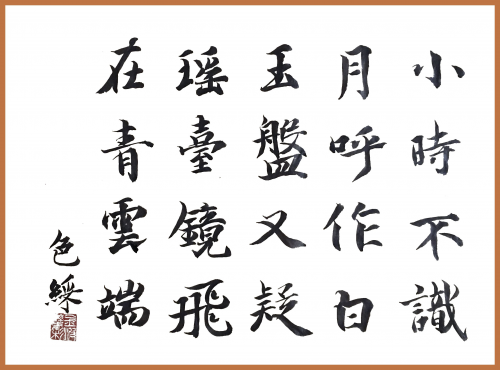 小時不識
月呼作白
玉盤又疑
瑶臺鏡飛
在青雲端
色綵